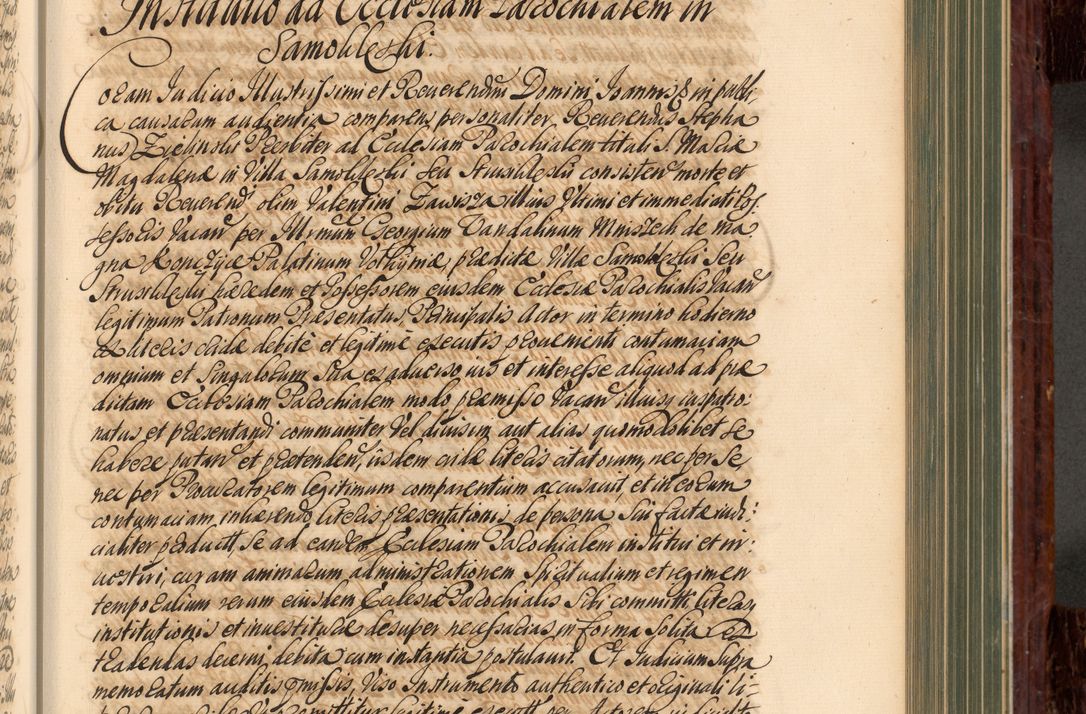 Institutio ad Ecclesiam Parochialem in
Samoklęski.
Coram Iudicio Illustrissimi et Reverendmi Domini Ioannis in publi-
ca causarum audientia comparens personaliter Reverendus Stepha
nus Zielinski Presbiter ad Ecclesiam Parochialem tituli S. Mariæ
Magdalenæ in Villa Samoklęski seu consisten morte et
obitu Reverendi olim Valentini illius Ultimi et immediati Pos-
sessoris Vacan per Illrmum Georgium Vandalinum Mniszech de ma-
gna Konczyce Palatinum Volhyniæ, prædictæ Villæ Samoklęski Seu
hæredem et Possessorem eiusdem Ecclesiæ Parochialis Vacan
legitimum Patronum Præsentatus, Principalis Actor in termino hodierno
ex literis cridæ debite et legitime executis provenienti contumaciam
omnium et Singulorum Sua ex adverso ius et interesse aliquod ad præ
dictam Ecclesiam Parochialem modo præmisso Vacan illiusq iuspatro-
natus et præsentandi communiter Vel divisim aut alias quomodolibet se
habere putan et prætenden, iisdem cridæ literis citatorum, nec per Se,
nec per Procuratorem legitimum comparentium accusavit, et in eorum
contumaciam, inhærendo literis præsentationis de persona Sui factæ iudi-
cialiter product, Se ad eandem Ecclesiam Parochialem institui et in-
vestiri, curam animarum, administrationem Spiritualium et regimen
temporalium rerum eiusdem Ecclesiæ Parochialis Sibi committi, literasq
institutionis et investituræ desuper necessarias, in forma Solita
tradendas decerni, debita cum instantia postulavit. Et Iudicium Supra
memoratum auditis præmissis, Viso Instrumento authentico et originali li-